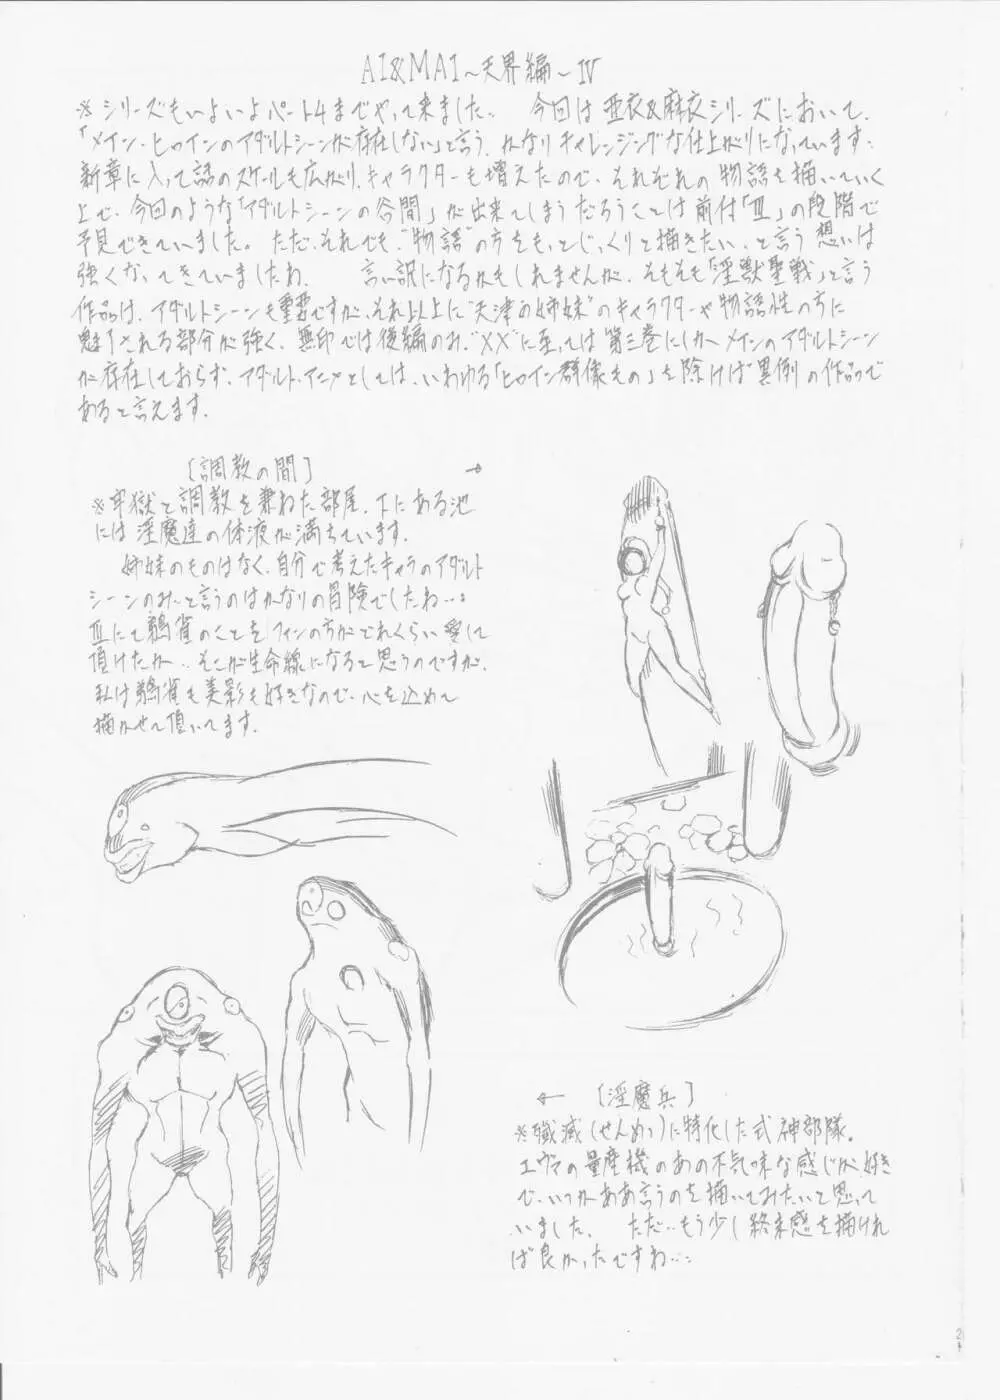 AI&MAI～天界編～Ⅳ
※シリーズもいよいよパート4までやって来ました。 今回は亜衣&麻衣シリーズにおいて、
「メイン・ヒロインのアダルトシーンが存在しない」と言う、かなりチャレンジングな仕上がりになっています。
新章に入って話のスケールも広がり、キャラクターも増えたので、それぞれの物語を描いていく
上で、今回のような「アダルトシーンの谷間」が出来てしまうだろうことは前作「Ⅲ」の段階で
予見できていました。ただ、それでも、"物語"の方をもっとじっくりと描きたい、と言う想いは
強くなってきていましたね。 言い訳になるかもしれませんが、そもそも「淫獣聖戦」と言う
作品は、アダルトシーンも重要ですが、それ以上に"天津の姉妹"のキャラクターや物語性の方に
魅了される部分が強く、無印では後編のみ、"XX"に至っては第三巻にしかメインのアダルトシーン
が存在しておらず、アダルト・アニメとしては、いわゆる「ヒロイン群像もの」を除けば異例の作品で
あると言えます。
[調教の間] →
※牢獄と調教を兼ねた部屋。下にある池
には淫魔達の体液が満ちています。
姉妹のものはなく、自分で考えたキャラのアダルト
シーンのみ、と言うのはかなりの冒険でしたね…。
Ⅲにて鵺雀のことをファンの方がどれくらい愛して
頂けたか…そこが生命線になると思うのですが、
私は鵺雀も美影も好きなので、心を込めて
描かせて頂いてます。
← [淫魔兵]
※殲滅(せんめつ)に特化した式神部隊。
エヴァの量産機のあの不気味な感じが好き
で、いつかああ言うのを描いてみたいと思って
いました。 ただ…もう少し終末感を描けれ
ば良かったですね…。
2